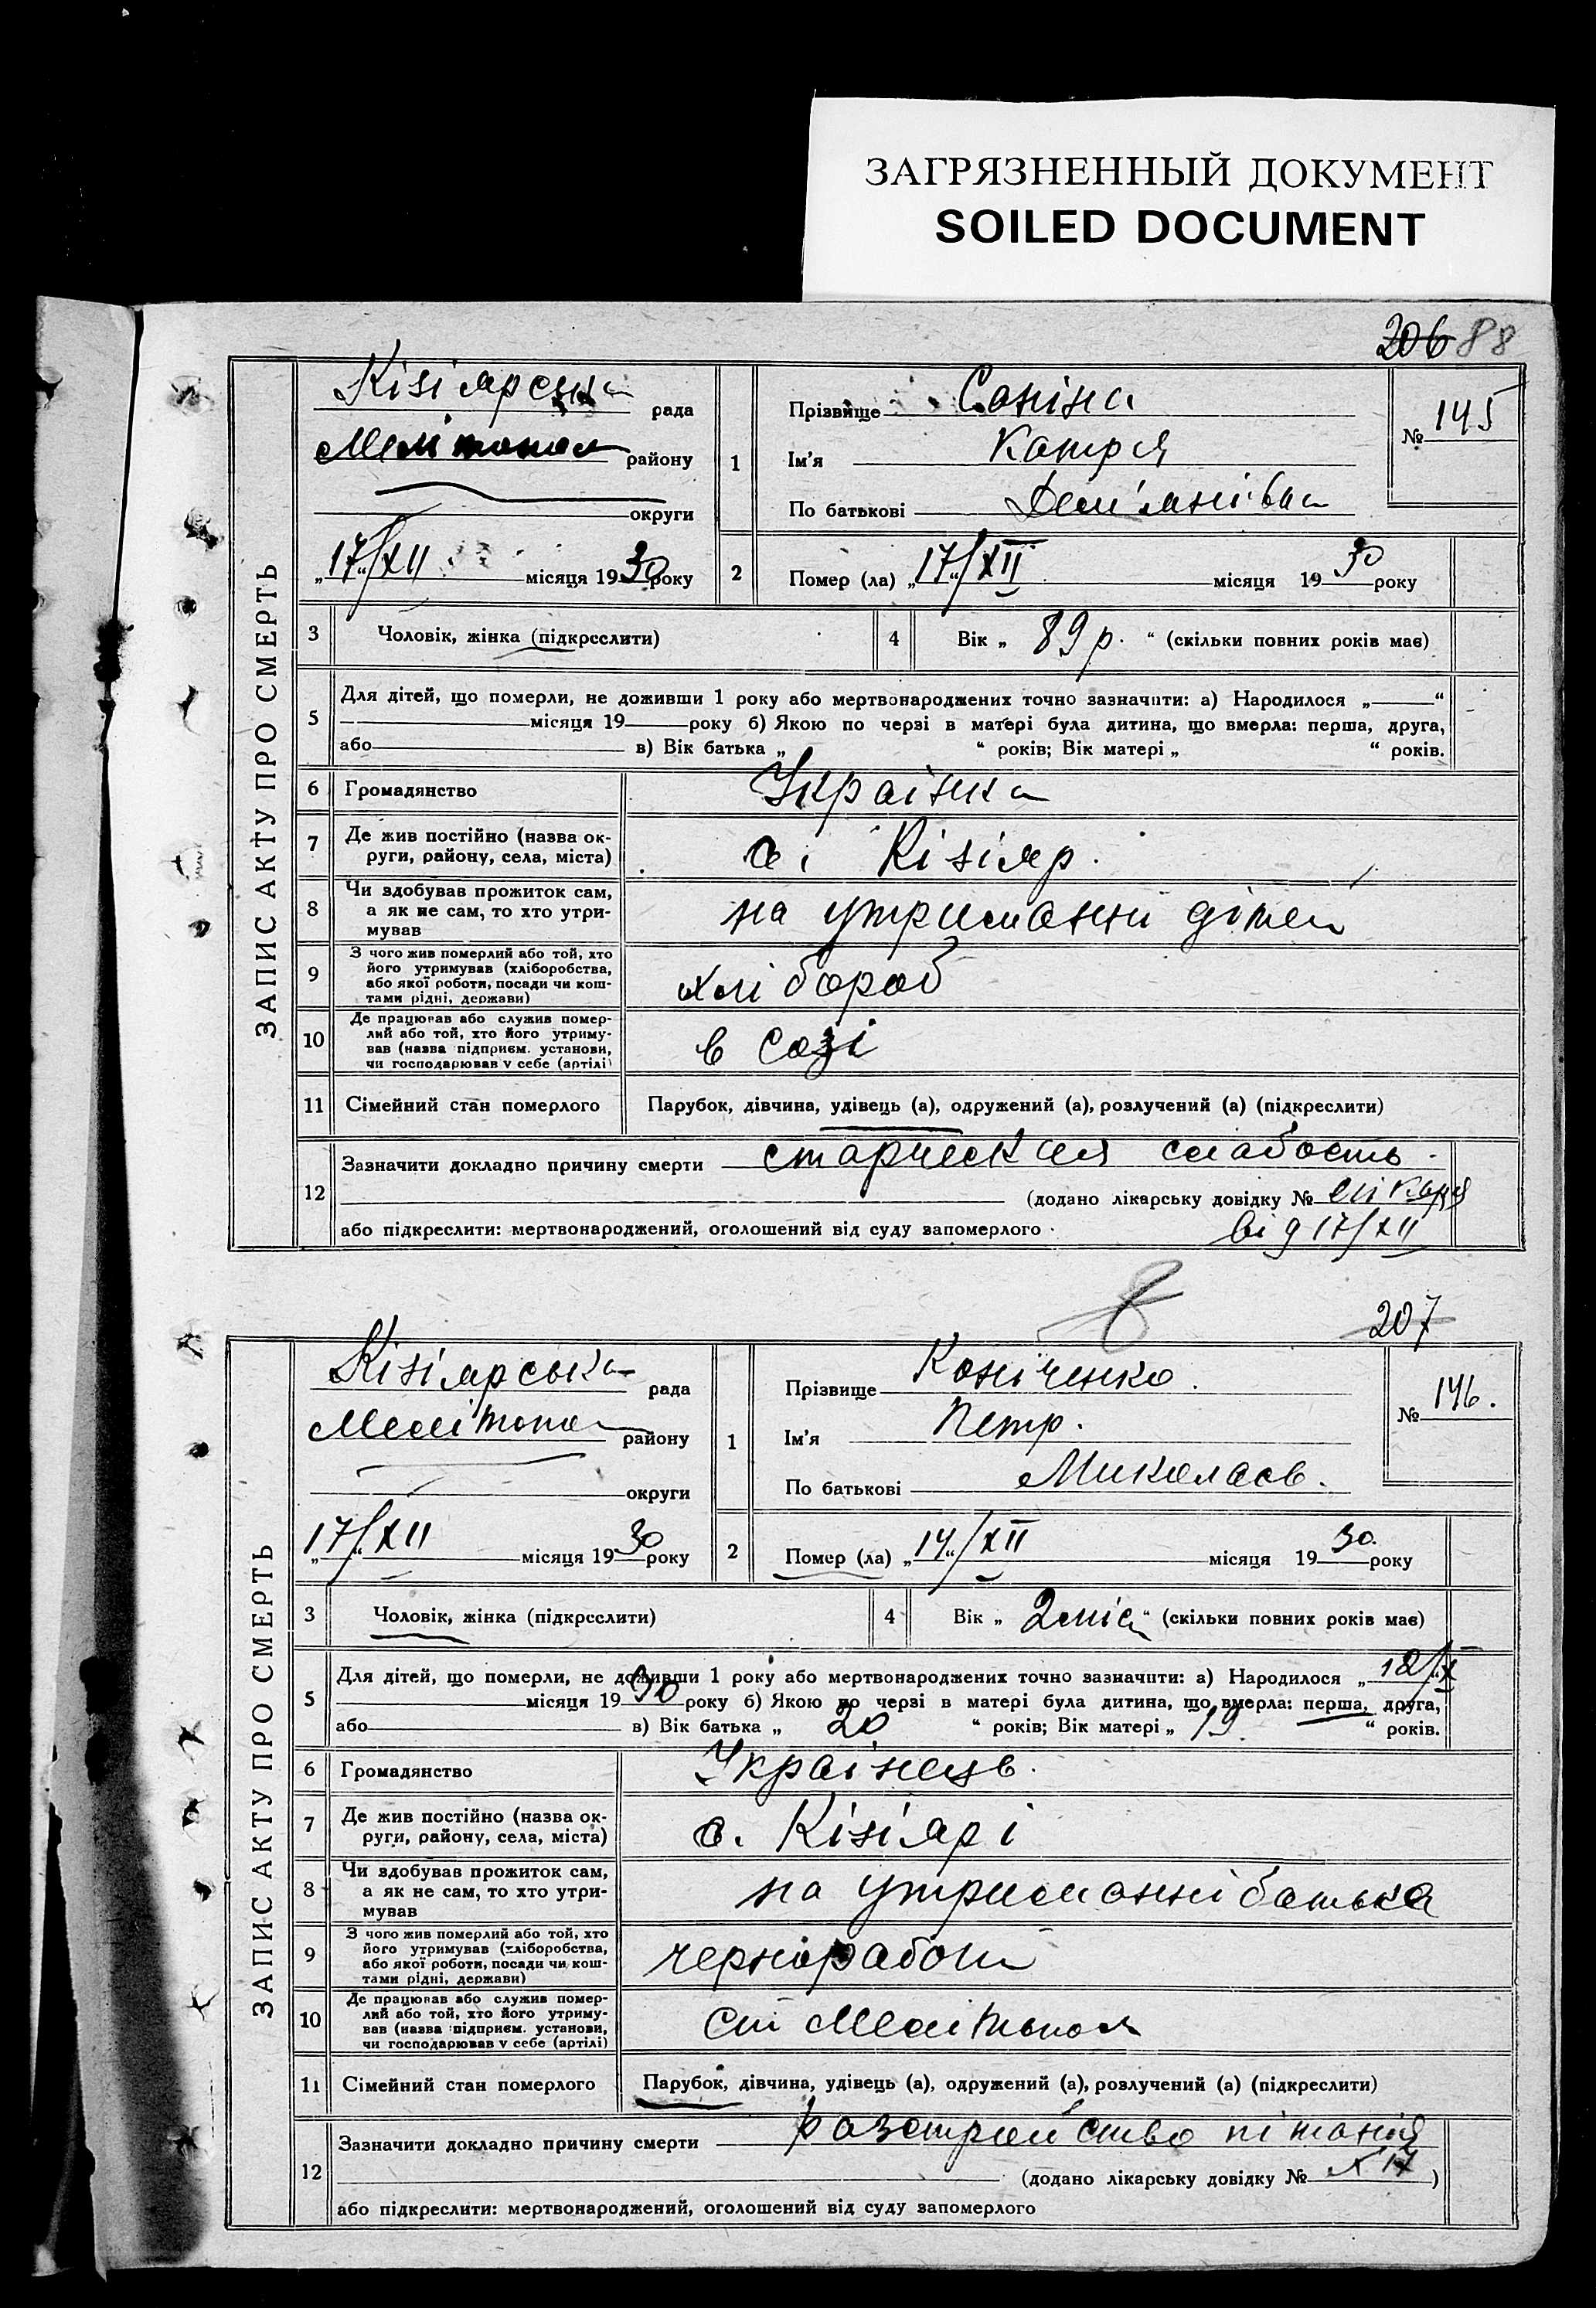 ЗАГРЯЗНЕННЫЙ ДОКУМЕНТ
SOILED DOCUMENT
206 88
ЗАПИС АКТУ ПРО СМЕРТЬ
Кізіярська рада
Мелітопол району
округи
„17“/XII місяця 1930 року
1
Прізвище Соніна
Ім'я Катря
По батькові Дем'янівна
№ 145
2
Помер (ла) „17“/XII місяця 1930 року
3
Чоловік, жінка (підкреслити)
4
Вік „ 89 р. “ (скільки повних років має)
5
Для дітей, що померли, не доживши 1 року або мертвонароджених точно зазначити: а) Народилося „ “
місяця 19 року б) Якою по черзі в матері була дитина, що вмерла: перша, друга,
або в) Вік батька „ “ років; Вік матері „ “ років.
6
Громадянство
Українка
7
Де жив постійно (назва ок-
руги, району, села, міста)
с. Кізіяр.
8
Чи здобував прожиток сам,
а як не сам, то хто утри-
мував
на утриманні дітей
9
З чого жив померлий або той, хто
його утримував (хліборобства,
або якої роботи, посади чи кош-
тами рідні, держави)
хлібороб
10
Де працював або служив помер-
лий або той, хто його утриму-
вав (назва підприєм. установи,
чи господарював у себе (артілі)
в созі
11
Сімейний стан померлого
Парубок, дівчина, удівець (а), одружений (а), розлучений (а) (підкреслити)
12
Зазначити докладно причину смерти старческая слабость.
(додано лікарську довідку № лікаря
або підкреслити: мертвонароджений, оголошений від суду запомерлого
від 17/XII
207
ЗАПИС АКТУ ПРО СМЕРТЬ
Кізіярська рада
Мелітопол району
округи
„17“/XII місяця 1930 року
1
Прізвище Коніченко.
Ім'я Петр.
По батькові Миколаєв.
№ 146.
2
Помер (ла) „14“/XII місяця 1930. року
3
Чоловік, жінка (підкреслити)
4
Вік „ 2 міс “ (скільки повних років має)
5
Для дітей, що померли, не доживши 1 року або мертвонароджених точно зазначити: а) Народилося „12“/X
місяця 1930 року б) Якою по черзі в матері була дитина, що вмерла: перша, друга,
або в) Вік батька „ 20 “ років; Вік матері „ 19 “ років.
6
Громадянство
Українець.
7
Де жив постійно (назва ок-
руги, району, села, міста)
с. Кізіярі
8
Чи здобував прожиток сам,
а як не сам, то хто утри-
мував
на утриманні батька
9
З чого жив померлий або той, хто
його утримував (хліборобства,
або якої роботи, посади чи кош-
тами рідні, держави)
чернорабоч
10
Де працював або служив помер-
лий або той, хто його утриму-
вав (назва підприєм. установи,
чи господарював у себе (артілі)
ст Мелітопол
11
Сімейний стан померлого
Парубок, дівчина, удівець (а), одружений (а), розлучений (а) (підкреслити)
12
Зазначити докладно причину смерти разстройство пітанія
(додано лікарську довідку № 17)
або підкреслити: мертвонароджений, оголошений від суду запомерлого